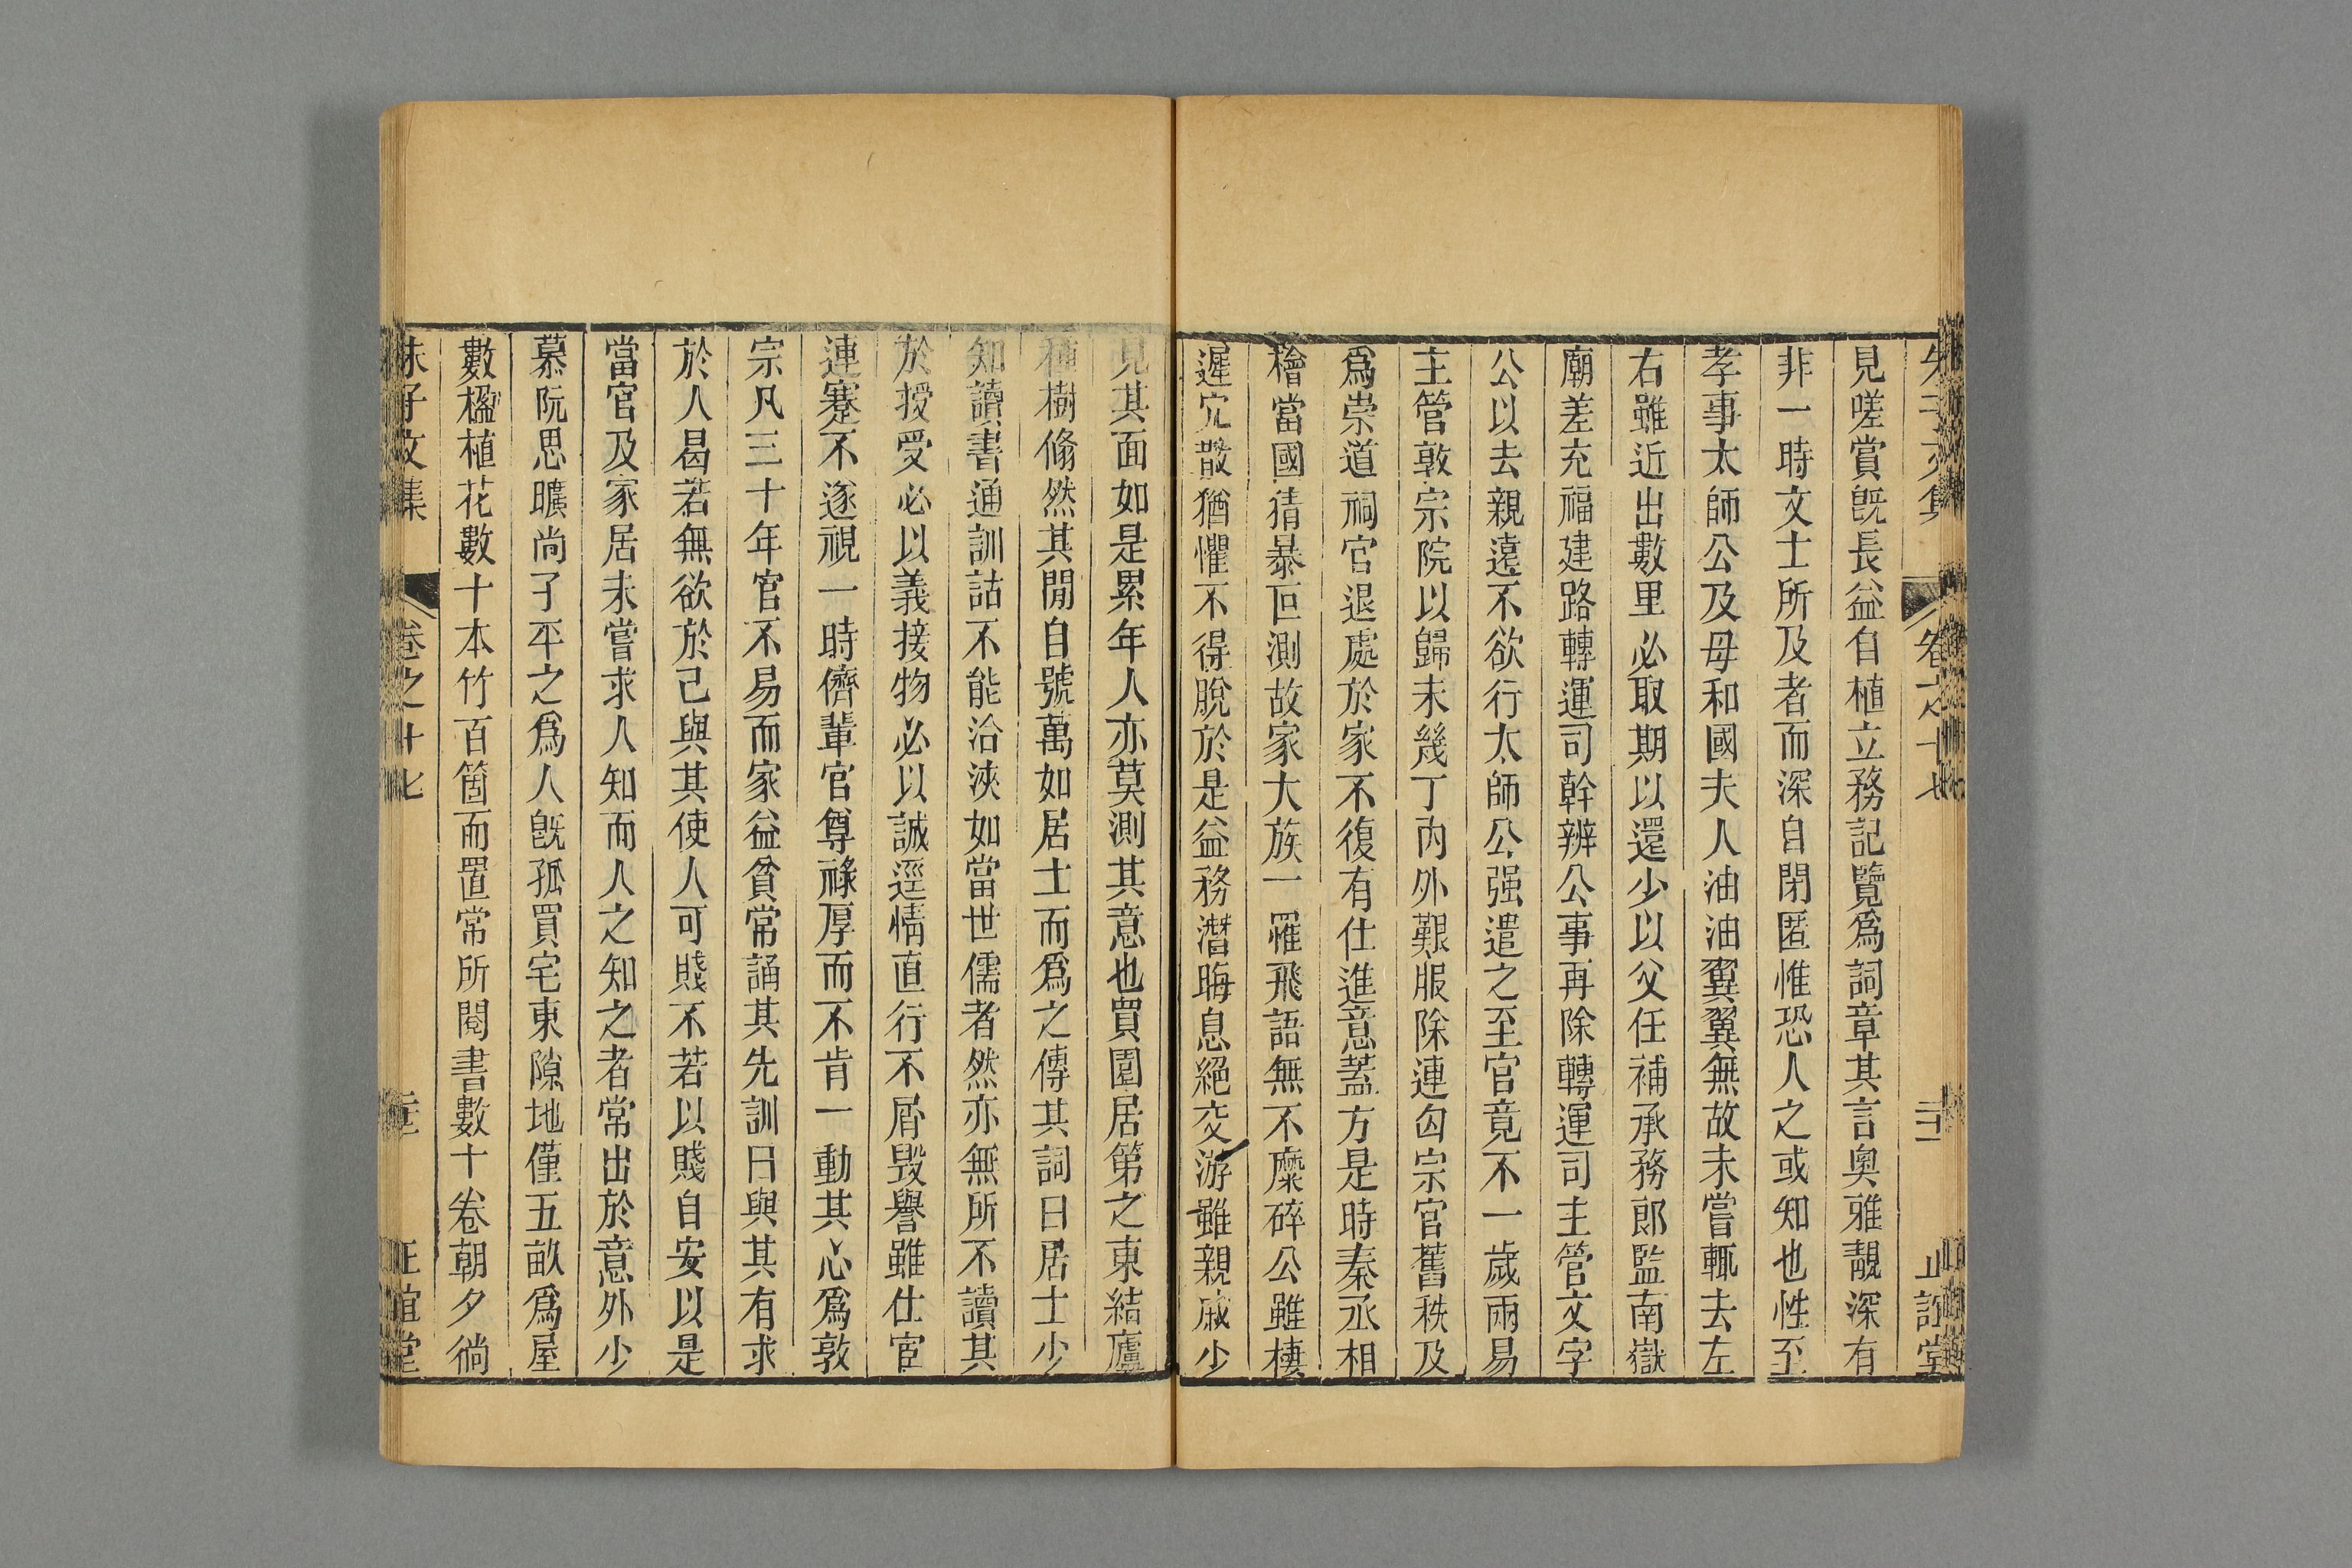 朱子文集 卷之十七 正誼堂
見嗟賞旣長益自植立務記覽爲詞章其言奧雅靚深有
非一時文士所及者而深自閉匿惟恐人之或知也性至
孝事太師公及母和國夫人油油翼翼無故未嘗輒去左
右雖近出數里必取期以還少以父任補承務郎監南嶽
廟差充福建路轉運司幹辨公事再除轉運司主管文字
公以去親遠不欲行太師公强遣之至官竟不一歲兩易
主管敦宗院以歸未幾丁內外艱服除連匃宗官舊秩及
爲崇道祠官退處於家不復有仕進意蓋方是時秦丞相
檜當國猜暴叵測故家大族一罹飛語無不糜碎公雖棲
遲宂散猶懼不得脫於是益務潛晦息絕交游雖親戚少
見其面如是累年人亦莫測其意也買園居第之東結廬
種樹翛然其閒自號萬如居士而爲之傳其詞曰居士少
知讀書通訓詁不能洽浹如當世儒者然亦無所不讀其
於授受必以義接物必以誠逕情直行不屑毀譽雖仕宦
連蹇不遂視一時儕輩官尊祿厚而不肯一動其心爲敦
宗凡三十年官不易而家益貧常誦其先訓曰與其有求
於人曷若無欲於己與其使人可賤不若以賤自安以是
當官及家居未嘗求人知而人之知之者常出於意外少
慕阮思曠尚子平之爲人旣孤買宅東隙地僅五畝爲屋
數楹植花數十本竹百箇而置常所閱書數十卷朝夕徜
朱子文集 卷之十七 正誼堂